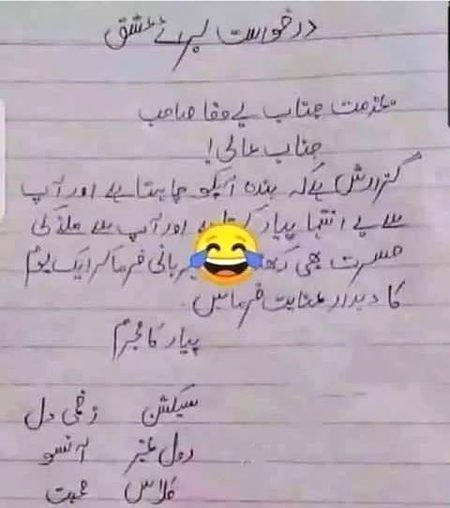 درخواست برائے عشق
بخدمت جناب بے وفا صاحب
جناب عالی!
گزارش ہے کہ بندہ آپکو چاہتا ہے اور آپ
سے بے انتہا پیار کرتا ہے اور آپ سے ملنے کی
حسرت بھی مہربانی فرما کر ایک یوم
کا دیدار عنایت فرمائیں.
پیار کا مجرم
سیکشن زخمی دل
رول نمبر آنسو
کلاس محبت